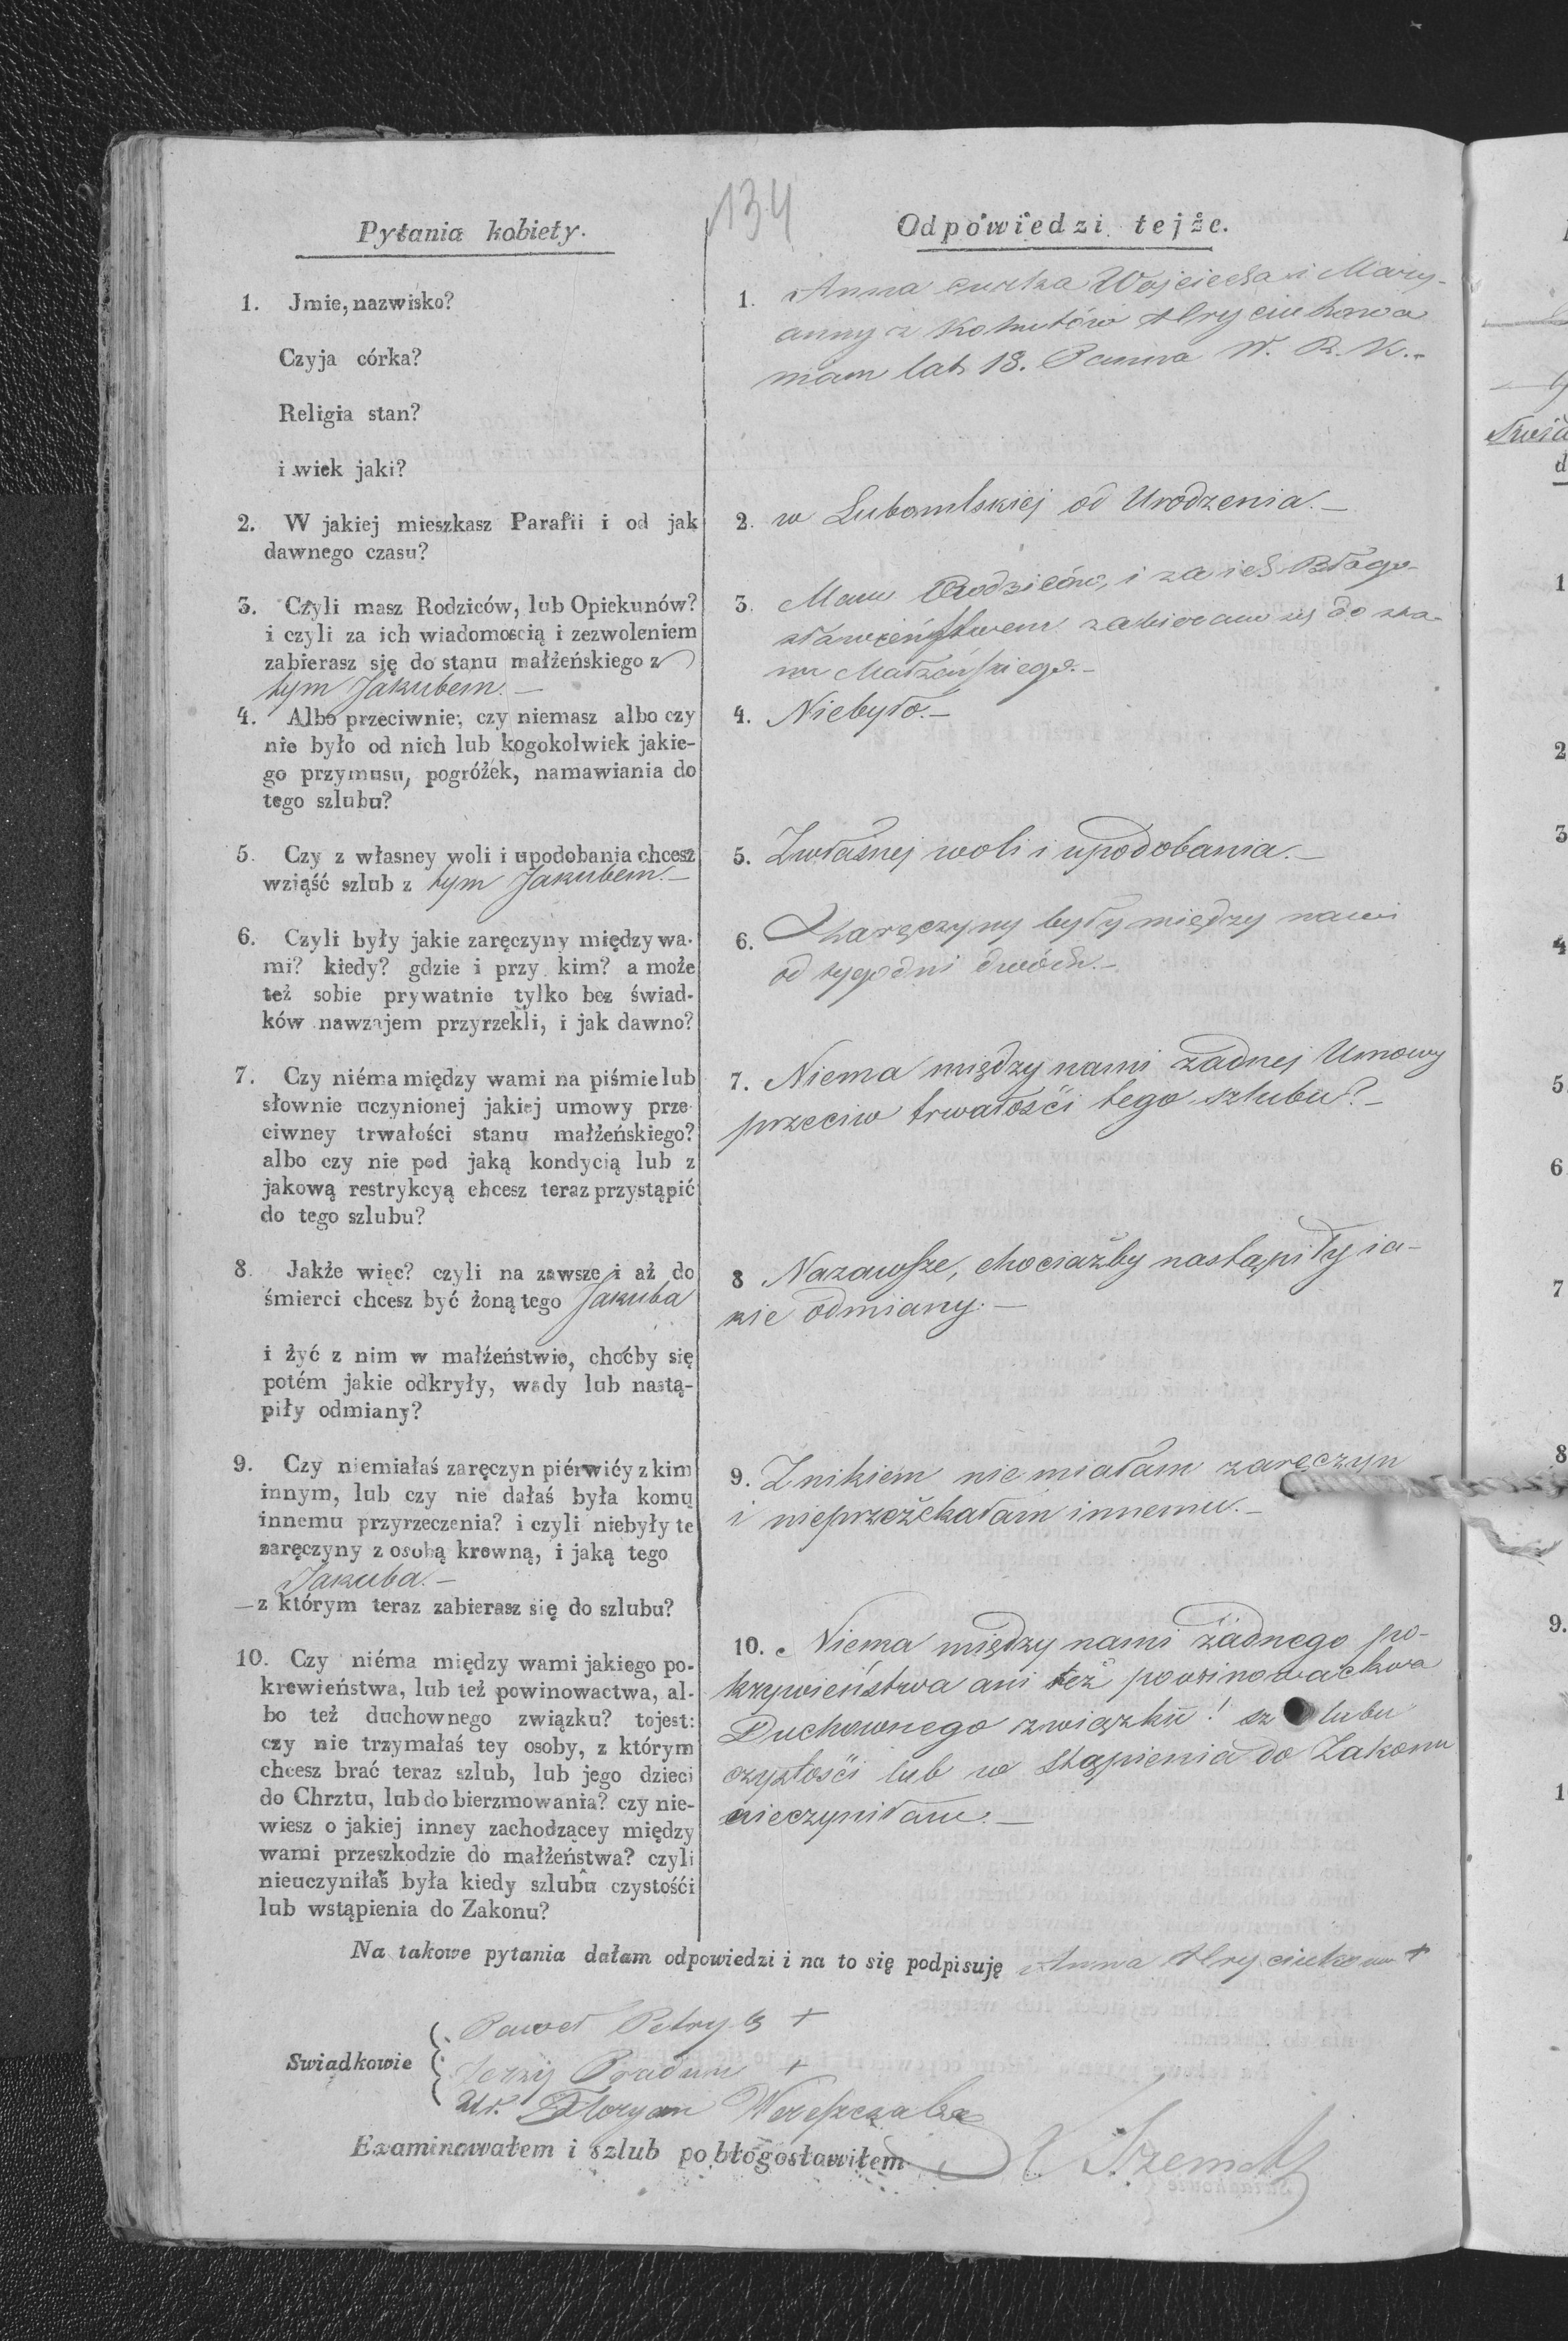 134
Pytania kobiety.
1. Jmie, nazwisko?
Czyja córka?
Religia stan?
i wiek jaki?
2. W jakiej mieszkasz Parafii i od jak
dawnego czasu?
3. Czyli masz Rodziców, lub Opiekunów?
i czyli za ich wiadomością i zezwoleniem
zabierasz się do stanu małżeńskiego z
tym Jakubem. —
4. Albo przeciwnie, czy niemasz albo czy
nie było od nich lub kogokolwiek jakie-
go przymusu, pogróżek, namawiania do
tego szlubu?
5. Czy z własney woli i upodobania chcesz
wziąść szlub z tym Jakubem. —
6. Czyli były jakie zaręczyny między wa-
mi? kiedy? gdzie i przy kim? a może
też sobie prywatnie tylko bez świad-
ków nawzajem przyrzekli, i jak dawno?
7. Czy niéma między wami na piśmie lub
słownie uczynionej jakiej umowy prze-
ciwney trwałości stanu małżeńskiego?
albo czy nie pod jaką kondycią lub z
jakową restrykcyą chcesz teraz przystąpić
do tego szlubu?
8. Jakże więc? czyli na zawsze i aż do
śmierci chcesz być żoną tego Jakuba
i żyć z nim w małżeństwie, choćby się
potém jakie odkryły, wady lub nastą-
piły odmiany?
9. Czy niemiałaś zaręczyn piérwiéy z kim
innym, lub czy nie dałaś była komu
innemu przyrzeczenia? i czyli niebyły te
zaręczyny z osobą krewną, i jaką tego
Jakuba. —
— z którym teraz zabierasz się do szlubu?
10. Czy niéma między wami jakiego po-
krewieństwa, lub też powinowactwa, al-
bo też duchownego związku? tojest:
czy nie trzymałaś tey osoby, z którym
chcesz brać teraz szlub, lub jego dzieci
do Chrztu, lub do bierzmowania? czy nie-
wiesz o jakiej inney zachodzącey między
wami przeszkodzie do małżeństwa? czyli
nieuczyniłaś była kiedy szlubu czystośći
lub wstąpienia do Zakonu?
Odpowiedzi tejże.
1. Anna curka Wojciecha i Mary-
anny z Kohutów Hryciukowa
mam lat 18. Panna W. R. K. -
2. w Lubomlskiej od Urodzenia. —
3. Mam Rodziców, i za ich Błogo-
sławieństwem zabieram się do sta-
nu Małżeńskiego. -
4. Niebyło. —
5. Zwłasnej woli i upodobania. —
6. Zaręczyny były między nami
od tygodni dwóch. -
7. Niema między nami żadnej Umowy
przeciw trwałośći tego szlubu? -
8 Nazawsze, chociażby nastąpiły ia-
kie odmiany. —
9. Znikiem niemiałam zaręczyn
i nieprzeżekałam innemu. -
10. Niema między nami żadnego po-
krzywieństwa ani też powinowactwa
Duchownego związku! sz lubu
czystośći lub w stąpienia do Zakonu
nieczyniłam. —
Na takowe pytania dałam odpowiedzi i na to się podpisuję Anna Hryciukowa +
Swiadkowie
Paweł +
+
Floryan
Examinowałem i szlub pobłogosławiłem